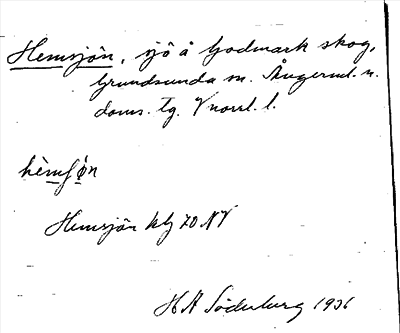 Hemsjön, sjö å Godmark skog,
Grundsunda sn. Ångerml. n.
doms. Tg. Vnorrl. l.
Hemsjön kbl 70 NV
H A Söderberg 1936